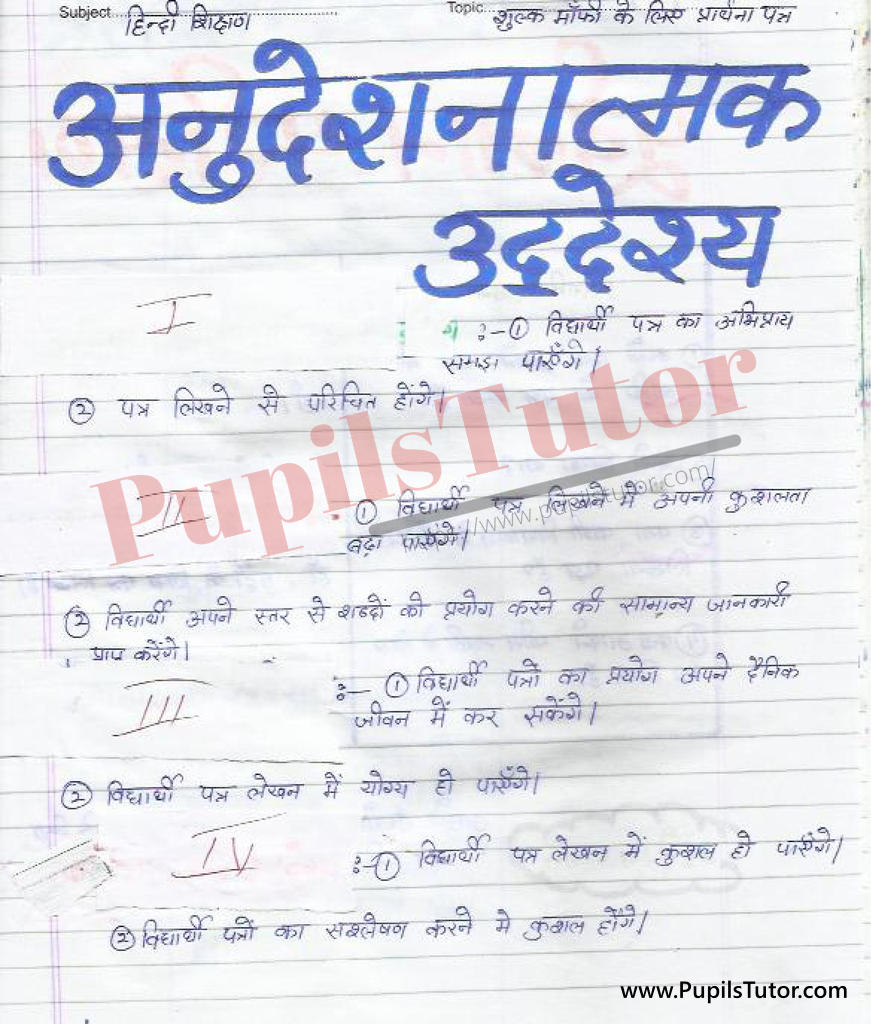 Subject हिन्दी शिक्षण Topic शुल्क मॉफी के लिए प्रार्थना पत्र
अनुदेशनात्मक
उद्देश्य
I
ग :- ① विद्यार्थी पत्र का अभिप्राय
समझ पाएँगे।
② पत्र लिखने से परिचित होंगे।
PupilsTutor
//www.pupilstutor.com/
II
① विद्यार्थी पत्र लिखने में अपनी कुशलता
बढ़ा पाएंगे।
② विद्यार्थी अपने स्तर से शब्दों को प्रयोग करने की सामान्य जानकारी
प्राप्त करेंगे।
III
:- ① विद्यार्थी पत्रों का प्रयोग अपने दैनिक
जीवन में कर सकेंगे।
② विद्यार्थी पत्र लेखन में योग्य हो पाएँगे।
IV
:- ① विद्यार्थी पत्र लेखन में कुशल हो पाएंगे।
② विद्यार्थी पत्रों का सश्लेषण करने मे कुशल होंगे।
www.PupilsTutor.com